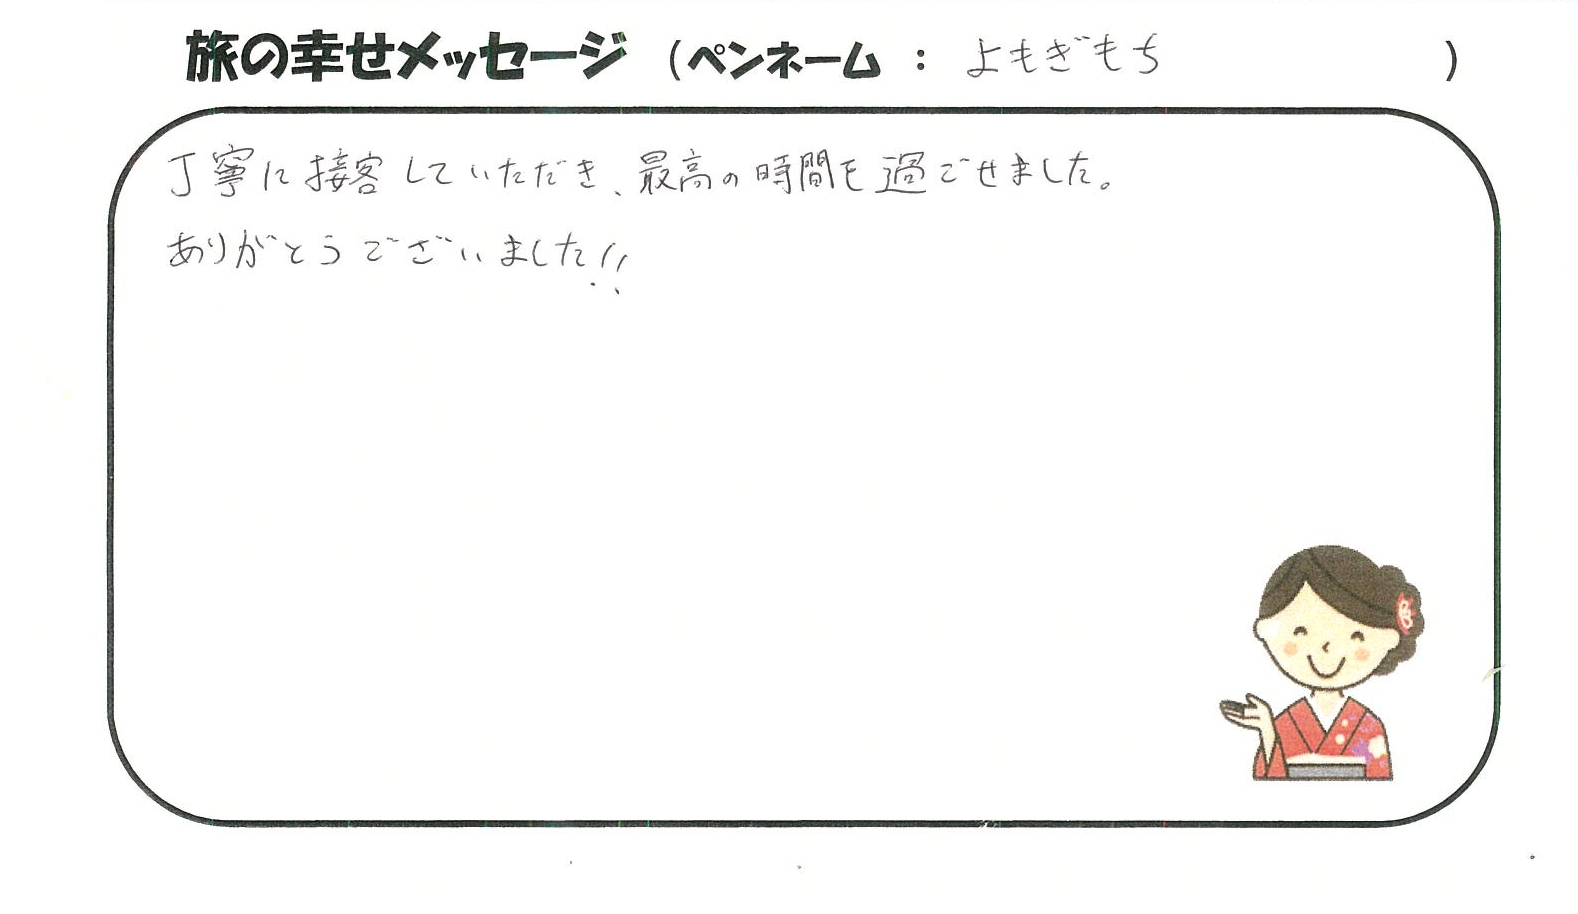 旅の幸せメッセージ (ペンネーム : よもぎもち )
丁寧に接客していただき、最高の時間を過ごせました。
ありがとうございました!!